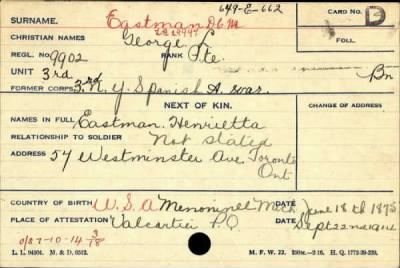 649-E-662
SURNAME. Eastman DCM CARD NO. D
CHRISTIAN NAMES George L FOLL.
REGL. NO. 9902 RANK Pte.
UNIT 3rd Bn
FORMER CORPS 3rd N. Y. Spanish A. war.
NEXT OF KIN. CHANGE OF ADDRESS
NAMES IN FULL Eastman, Henrietta
RELATIONSHIP TO SOLDIER Not Stated
ADDRESS 54 Westminster Ave Toronto
Ont
COUNTRY OF BIRTH U.S.A Menominee Mich DATE June 18th 1875
PLACE OF ATTESTATION Valcartier P.Q DATE Sept 22nd 1914
O/S 7-10-14 3/18
L. L. 94501. M. & D. 6512. M. F. W. 22. 250M.-2-16. H. Q. 1772-39-339.